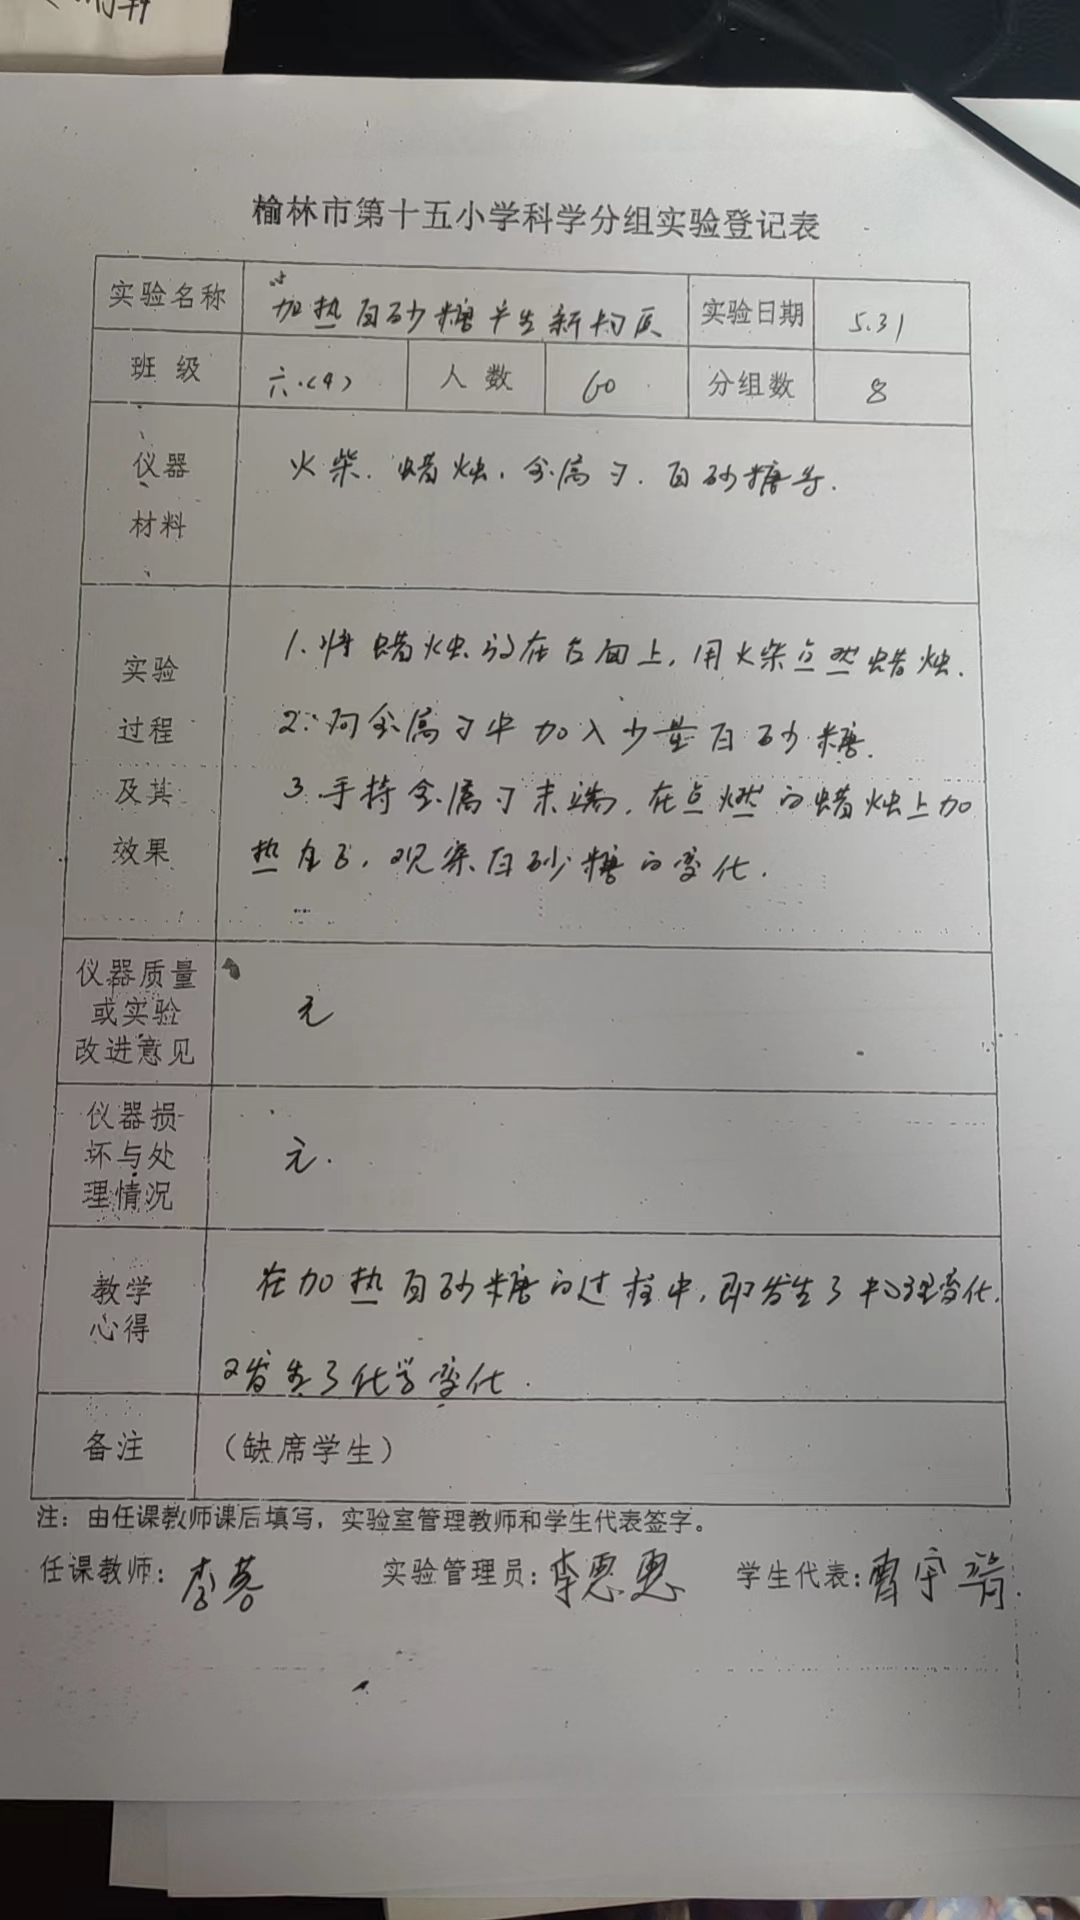 榆林市第十五小学科学分组实验登记表
实验名称 加热白砂糖产生新物质 实验日期 5.31
班级 六.(4) 人数 60 分组数 8
仪器 火柴、蜡烛、金属勺、白砂糖等.
材料
实验 1.将蜡烛放在台面上,用火柴点燃蜡烛.
过程 2.向金属勺中加入少量白砂糖.
及其 3.手持金属勺末端,在点燃的蜡烛上加
效果 热 观察白砂糖的变化.
仪器质量
或实验 无
改进意见
仪器损
坏与处 无.
理情况
教学 在加热白砂糖的过程中,即发生了物理变化,
心得
又发生了化学变化.
备注 (缺席学生)
注:由任课教师课后填写,实验室管理教师和学生代表签字。
任课教师: 实验管理员:李惠惠 学生代表:曹宇